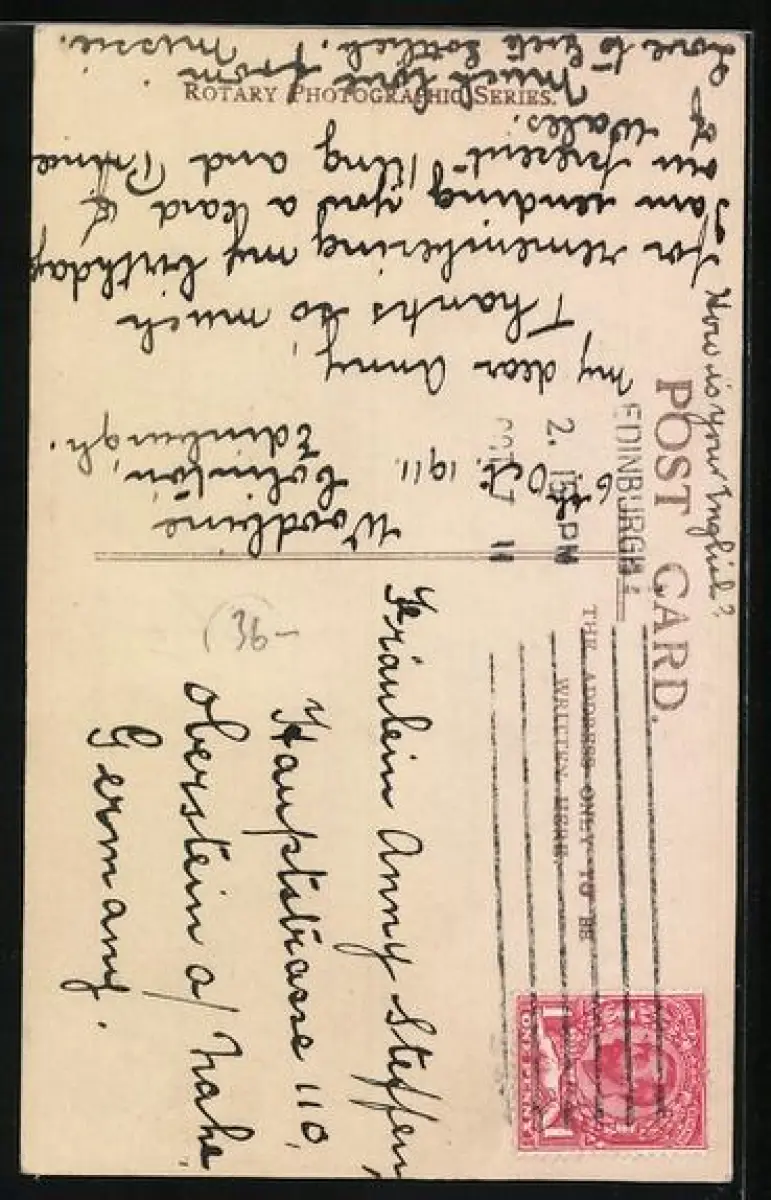 POST CARD.
THE ADDRESS ONLY TO BE
WRITTEN HERE.
EDINBURGH
2. 15 PM
OCT 7 11
ONE PENNY
How is your English?
Woodbine
Colinton,
Edinburgh.
6th Oct. 1911.
My dear Anny,
Thanks so much
for remembering my birthday
I am sending you a card of
our present King and Prince
of Wales.
Much love from
Love to Gottlieb. Missie.
ROTARY PHOTOGRAPHIC SERIES.
Fräulein Anny Steffen,
Hauptstrasse 110,
Oberstein a/Nahe,
Germany.
36-